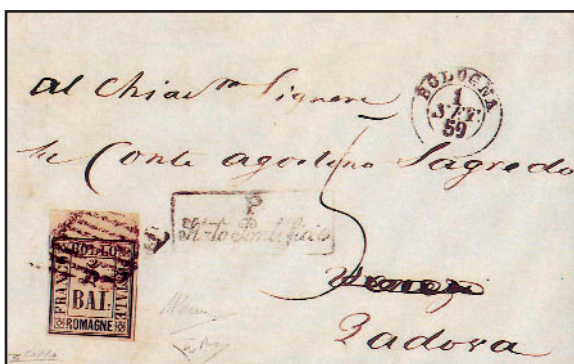 al Chiar.mo Signore
BOLOGNA
1
SET.
59
Conte Agostino Sagredo
P.
St-to Pontificio
5
FRANCO BOLLO POSTALE
BAI.
ROMAGNE
Padova